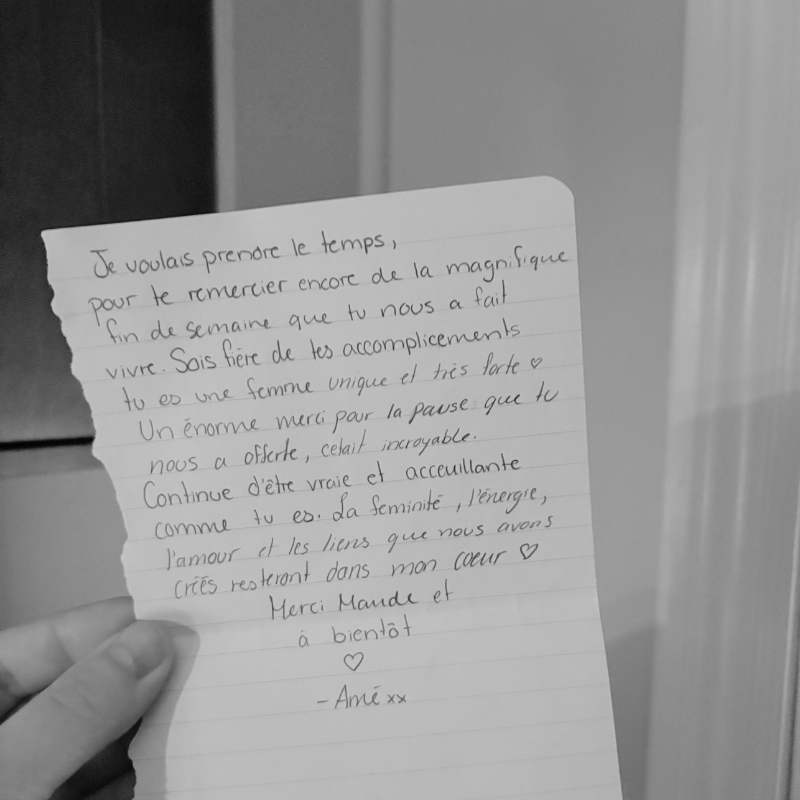 Je voulais prendre le temps,
pour te remercier encore de la magnifique
fin de semaine que tu nous a fait
vivre. Sois fière de tes accomplicements
tu es une femme unique et très forte ♡
Un énorme merci pour la pause que tu
nous a offerte, cetait incroyable.
Continue d'être vraie et acceuillante
comme tu es. La feminité, l'énergie,
l'amour et les liens que nous avons
créés resteront dans mon coeur ♡
Merci Maude et
à bientôt
♡
- Amé xx